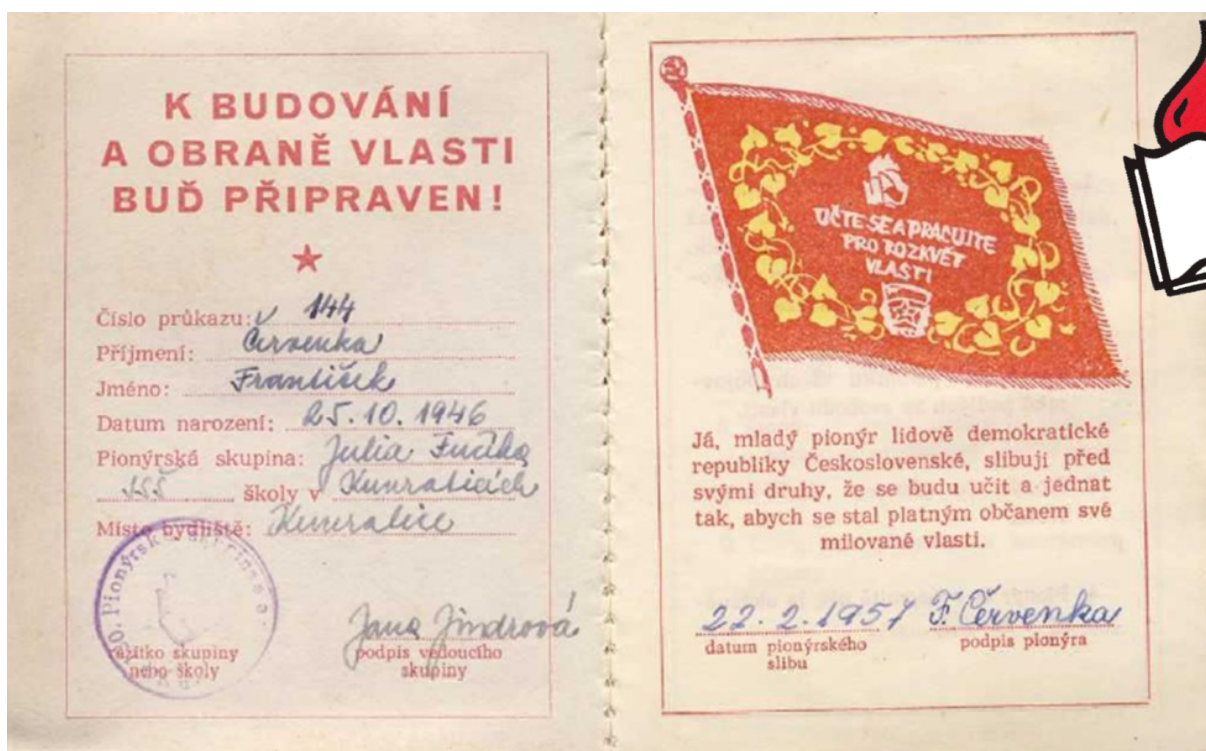 K BUDOVÁNÍ
A OBRANĚ VLASTI
BUĎ PŘIPRAVEN!
Číslo průkazu: 144
Příjmení: Červenka
Jméno: František
Datum narození: 25. 10. 1946
Pionýrská skupina: Julia Fučíka
školy v Kunraticích
Místo bydliště: Kunratice
Jana Jindrová
razítko skupiny
nebo školy
podpis vedoucího
skupiny
UČTE SE A PRACUJTE
PRO ROZKVĚT
VLASTI
Já, mladý pionýr lidově demokratické
republiky Československé, slibuji před
svými druhy, že se budu učit a jednat
tak, abych se stal platným občanem své
milované vlasti.
22. 2. 1957 F. Červenka
datum pionýrského
slibu
podpis pionýra